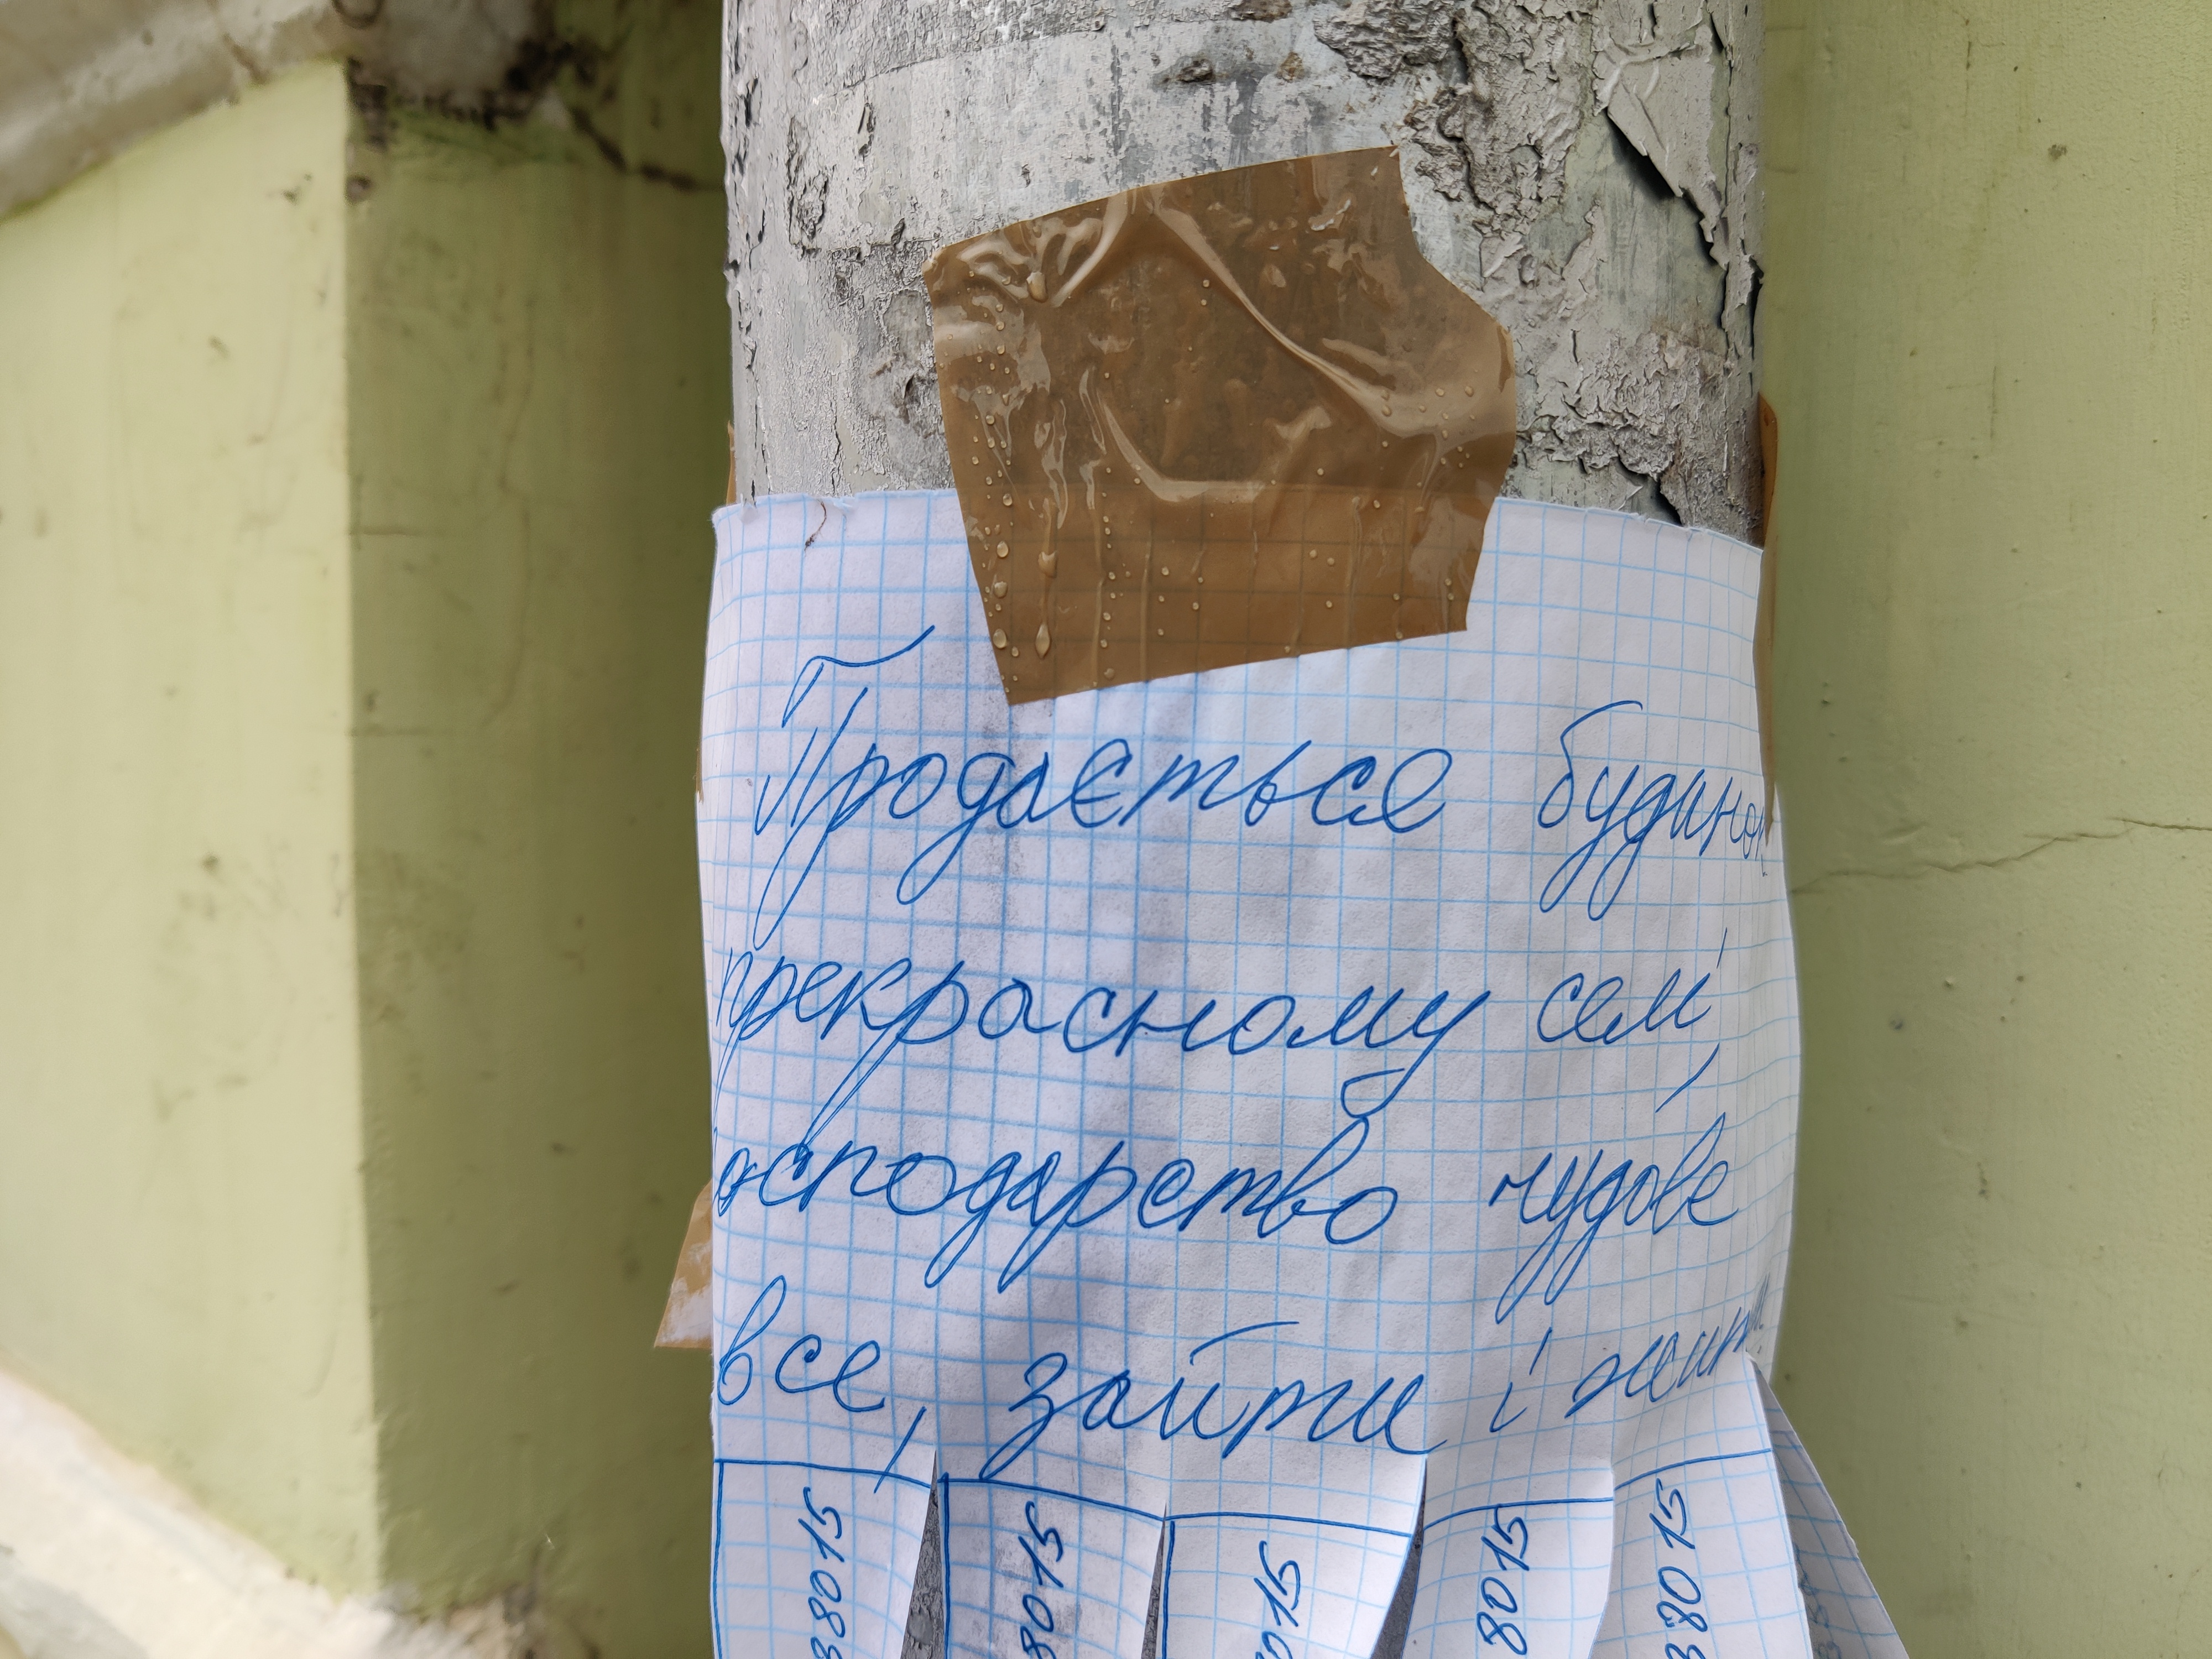 Продається будинок
прекрасному селі,
господарство чудове
все, зайти і жити
88015
8015
15
8015
38015